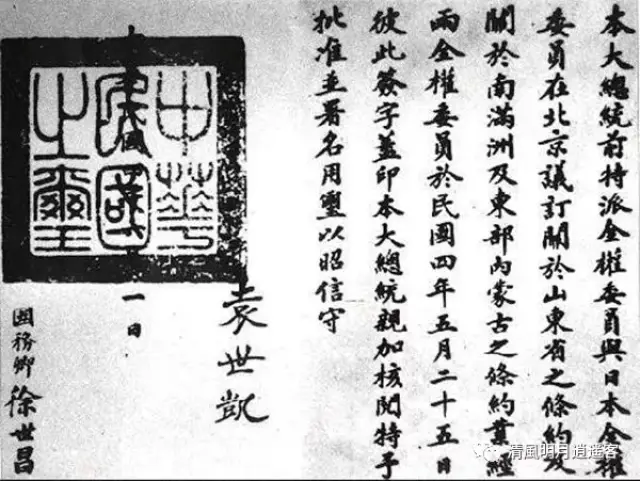 本大總統前特派全權委員與日本全權
委員在北京議訂關於山東省之條約及
關於南滿洲及東部內蒙古之條約業經
兩全權委員於民國四年五月二十五日
彼此簽字蓋印本大總統親加核閱特予
批准並署名用璽以昭信守
袁世凱
中華民國之璽
一日
國務卿 徐世昌
清風明月逍遥客